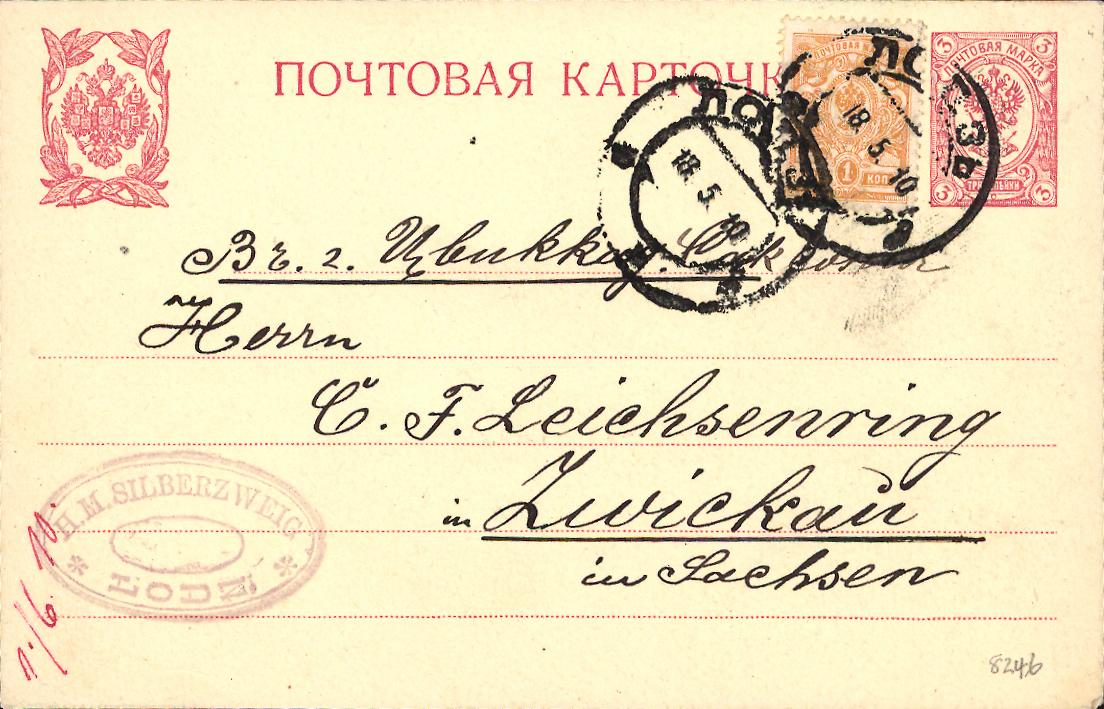 ПОЧТОВАЯ КАРТОЧК
ПОЧТОВАЯ МАРКА
3 3
3 ТРИ КОПѢЙКИ 3
ПОЧТОВАЯ
1 КОП
ЛОДЗЬ
18. 5. 10
ЛО ЗЬ
18. 5. 10
Въ. г. Цвиккау. Саксонии
Herrn
C. F. Leichsenring
in Zwickau
in Sachsen
H. M. SILBERZWEIG
* LODZ *
10.
8246